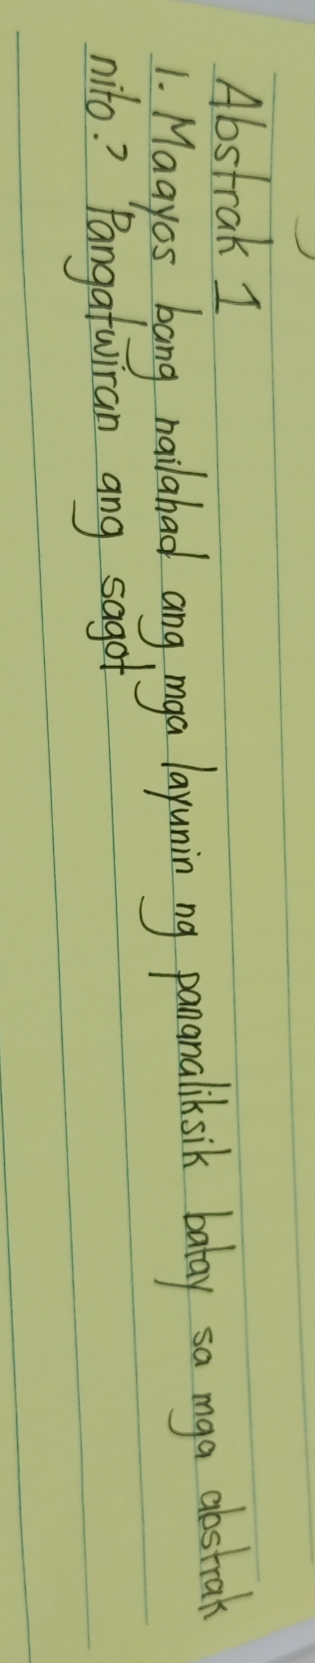 Abstrak 1
1. Maayos bang nailahad ang mga layunin ng pananaliksik batay sa mga abstrak
nito? Pangatwiran ang sagot